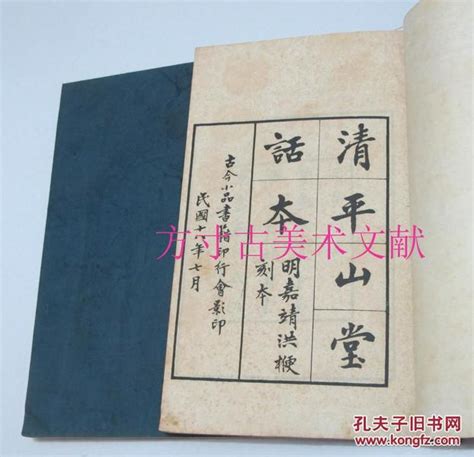 清平山堂
話本
明嘉靖洪楩
刻本
古今小品書籍印行會影印
民國十八年七月
方寸古美术文献
孔夫子旧书网
www.kongfz.com